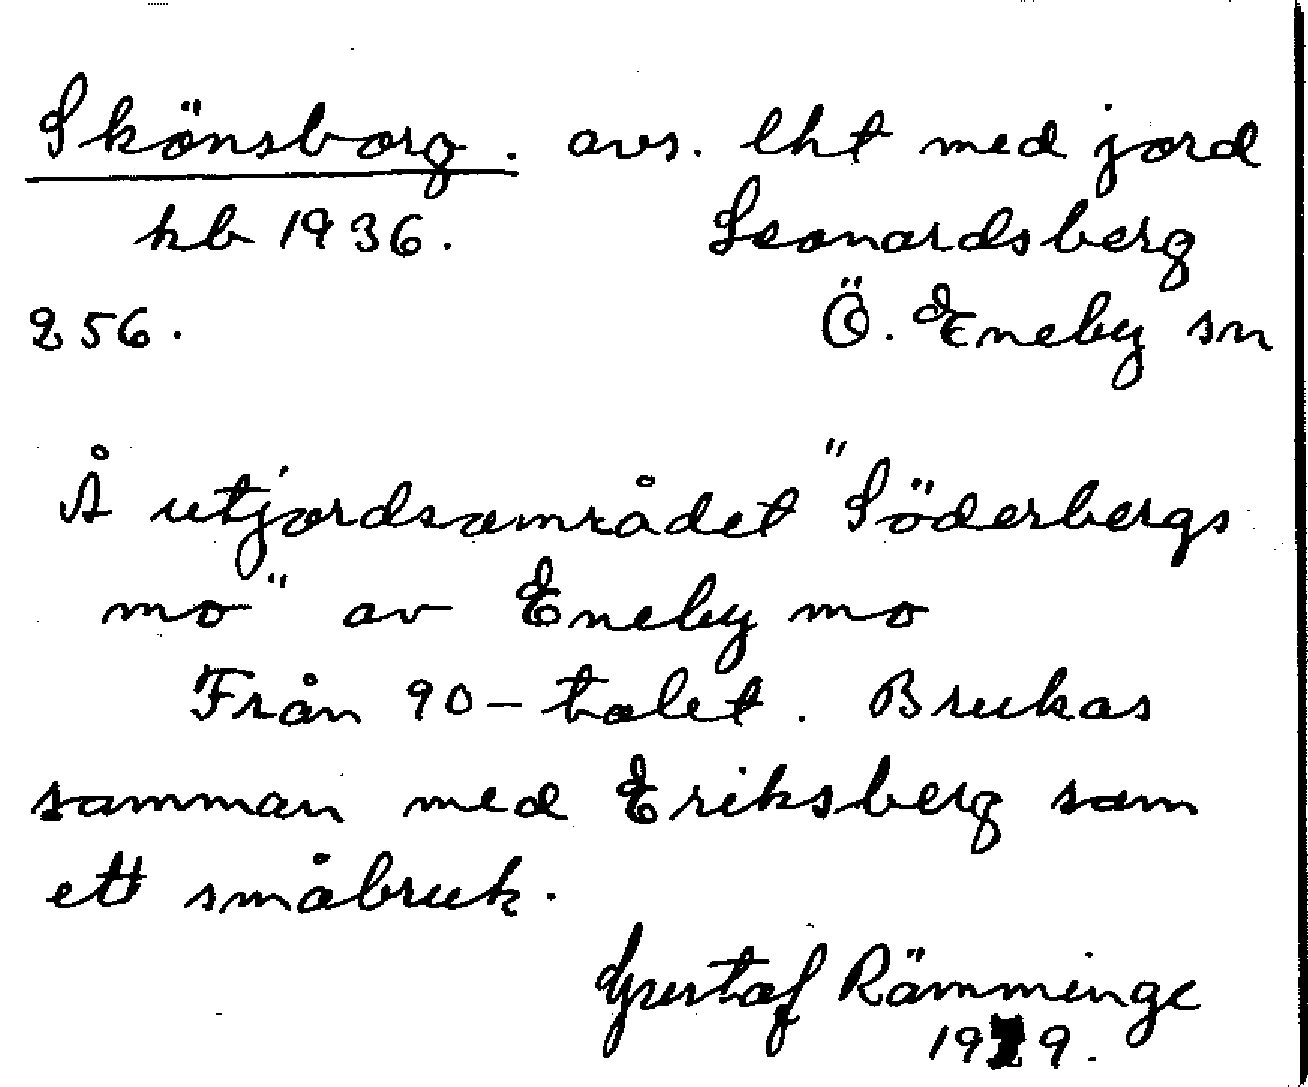 Skönsborg. avs. lht med jord
kb 1936. Leonardsberg
256. Ö. Eneby sn
Å utjordsområdet "Söderbergs
mo" av Eneby mo
Från 90-talet. Brukas
samman med Eriksberg som
ett småbruk.
Gustaf Rämminge